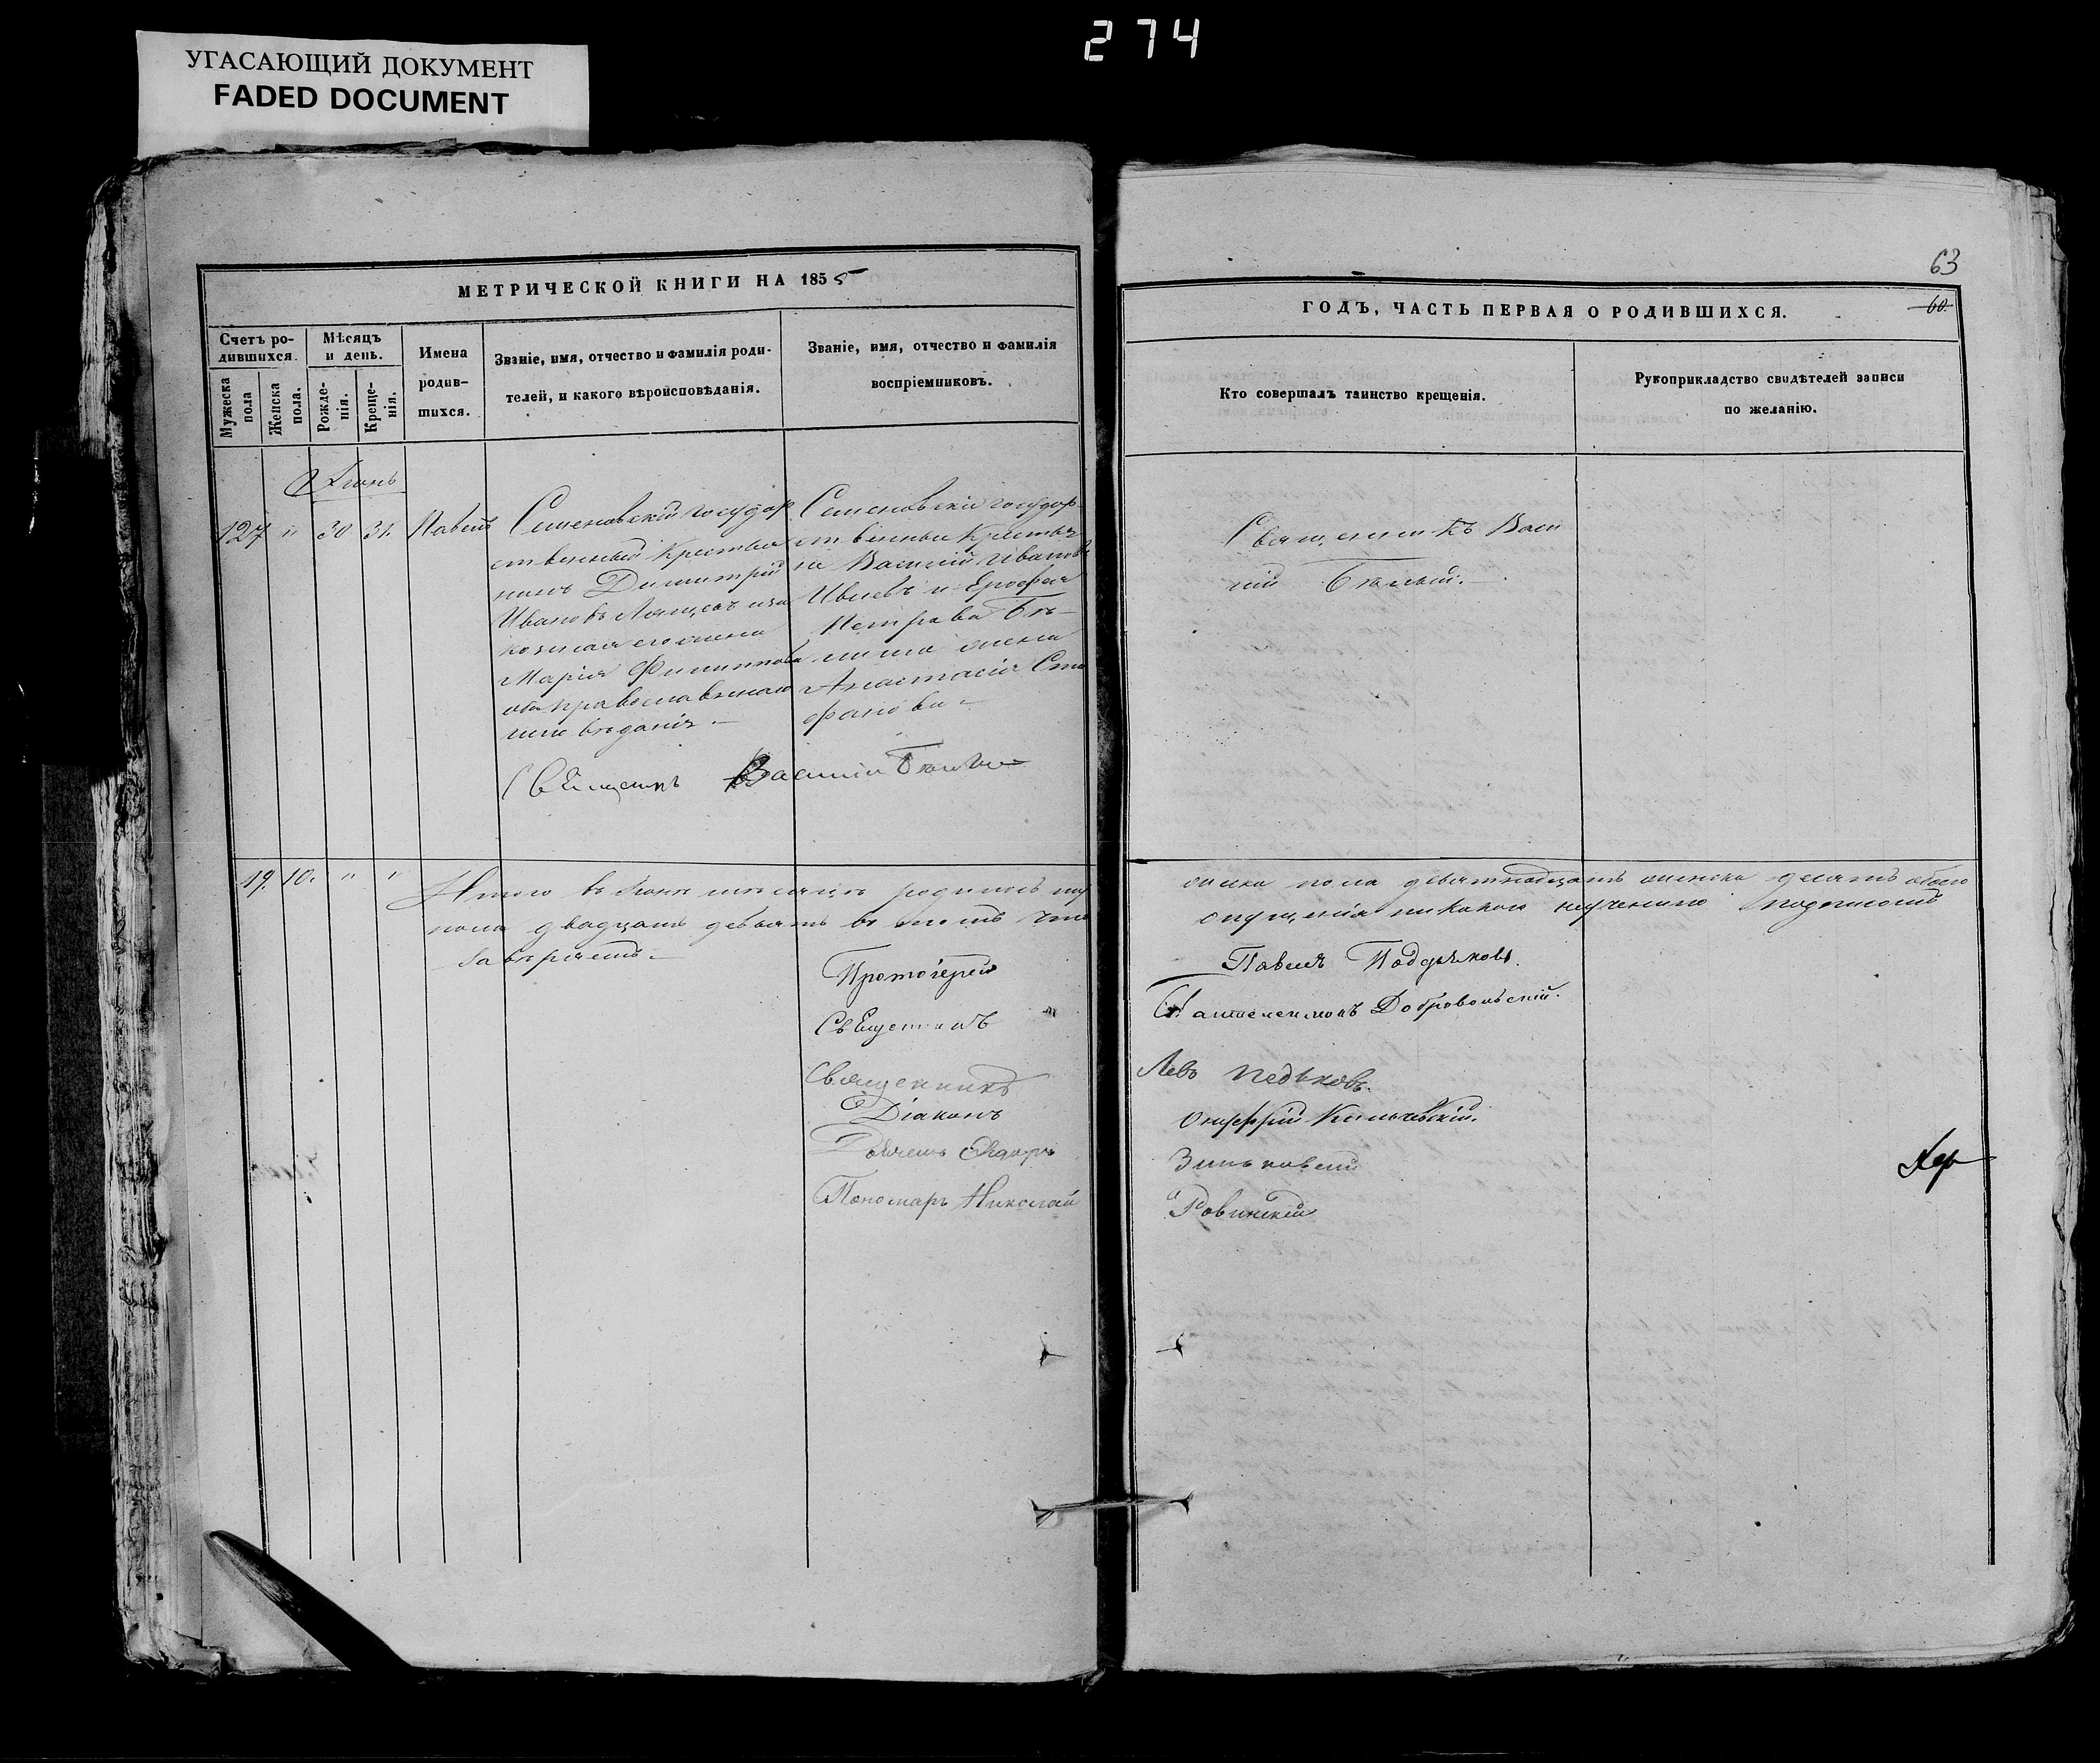 274
УГАСАЮЩИЙ ДОКУМЕНТ
FADED DOCUMENT
МЕТРИЧЕСКОЙ КНИГИ НА 1855
Счетъ ро-
дившихся.
Мужеска
пола
Женска
пола.
Мѣсяцъ
и день.
Рожде-
нія.
Креще-
нія.
Имена
родив-
шихся.
Званіе, имя, отчество и фамилія роди-
телей, и какого вѣроисповѣданія.
Званіе, имя, отчество и фамилія
воспріемниковъ.
127 " 30 31. Павелъ
Семеновскій государ
ственный Крестья
нинъ Димитрій
Ивановъ
жена
Марія Филиппова
оба православнаго
исповѣданія
Семеновскій государ-
ственный Крестья
нъ Василій Ивановъ
Ивлевъ и Ерофея
Петрова Бѣ-
жена
Анастасія Сте
фанова
Священникъ Василій
19. 10. " "
Итого въ Іюнѣ мѣсяцѣ родилось му
пола двадцать девять въ томъ что
завѣряетъ.
Протоіерей
Священникъ
Священникъ
Діаконъ
Дьячекъ
Пономарь Николай
63
60.
ГОДЪ, ЧАСТЬ ПЕРВАЯ О РОДИВШИХСЯ.
Кто совершалъ таинство крещенія.
Рукоприкладство свидѣтелей записи
по желанію.
Священникъ Васи
лій
жеска пола девятнадцать женска десять обоего
опущенія никакого неучинено
Павелъ Поддьяковъ.
Пантелеимонъ Добровольскій.
Левъ
Онуфрій
Зиньковскій
Ровинскій